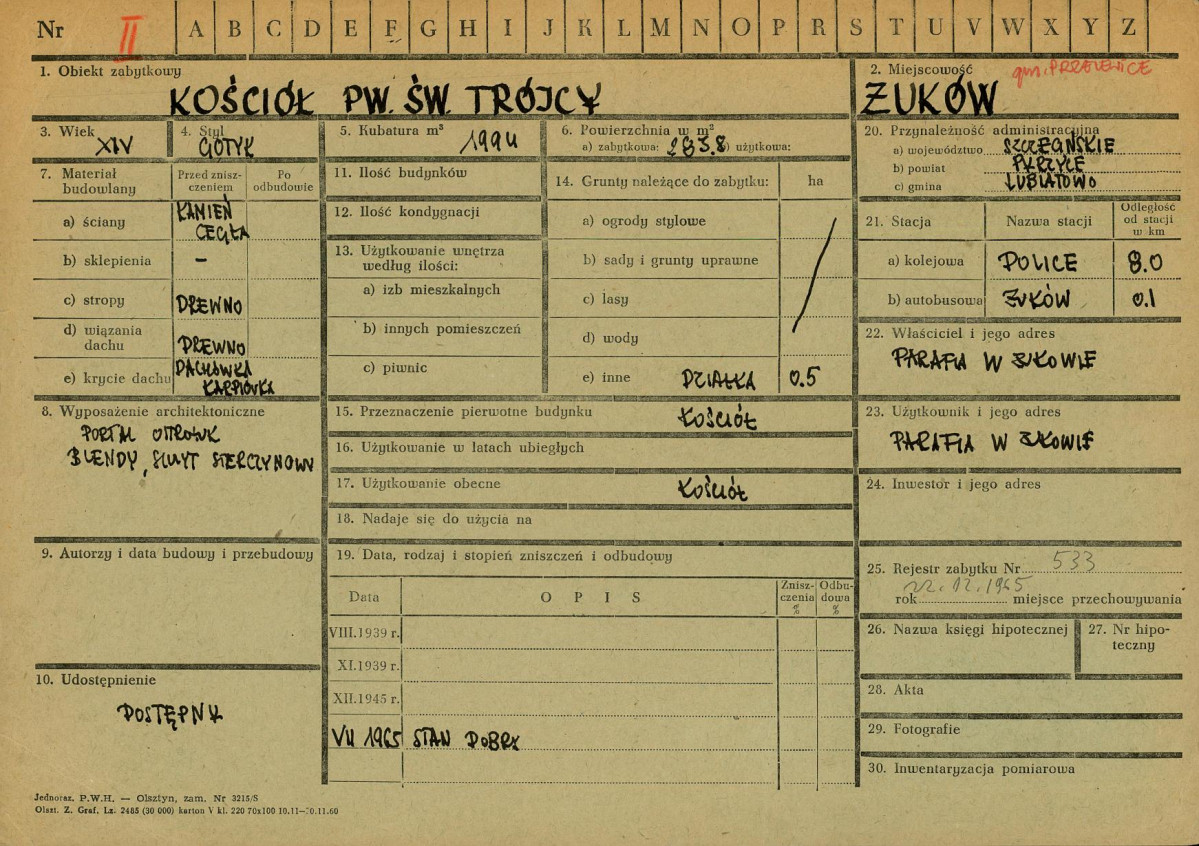 Nr II A B C D E F G H I J K L M N O P R S T U V W X Y Z
1. Obiekt zabytkowy
KOŚCIÓŁ PW. ŚW. TRÓJCY
2. Miejscowość
gm. PRZELEWICE
ŻUKÓW
3. Wiek
XIV
4. Styl
GOTYK
5. Kubatura m³
1994
6. Powierzchnia w m²
a) zabytkowa: 283.8 b) użytkowa:
20. Przynależność administracyjna
a) województwo SZCZECIŃSKIE
b) powiat PYRZYCE
c) gmina LUBIATOWO
7. Materiał budowlany
Przed zniszczeniem
Po odbudowie
a) ściany KAMIEŃ
CEGŁA
b) sklepienia –
c) stropy DREWNO
d) wiązania dachu DREWNO
e) krycie dachu DACHÓWKA
KARPIÓWKA
11. Ilość budynków
12. Ilość kondygnacji
13. Użytkowanie wnętrza
według ilości:
a) izb mieszkalnych
b) innych pomieszczeń
c) piwnic
14. Grunty należące do zabytku: ha
a) ogrody stylowe
b) sady i grunty uprawne
c) lasy
d) wody
e) inne DZIAŁKA 0.5
21. Stacja
Nazwa stacji
Odległość
od stacji
w km
a) kolejowa POLICE 8.0
b) autobusowa ŻUKÓW 0.1
22. Właściciel i jego adres
PARAFIA W ŻUKOWIE
8. Wyposażenie architektoniczne
PORTAL OSTROŁUK
BLENDY, SZCZYT STERCZYNOWY
15. Przeznaczenie pierwotne budynku KOŚCIÓŁ
16. Użytkowanie w latach ubiegłych
17. Użytkowanie obecne KOŚCIÓŁ
18. Nadaje się do użycia na
23. Użytkownik i jego adres
PARAFIA W ŻUKOWIE
24. Inwestor i jego adres
9. Autorzy i data budowy i przebudowy
19. Data, rodzaj i stopień zniszczeń i odbudowy
Data
OPIS
Zniszczenia
%
Odbudowa
%
VIII.1939 r.
XI.1939 r.
XII.1945 r.
VII 1965 STAN DOBRY
10. Udostępnienie
DOSTĘPNY
25. Rejestr zabytku Nr 533
rok 22.12.1965 miejsce przechowywania
26. Nazwa księgi hipotecznej
27. Nr hipoteczny
28. Akta
29. Fotografie
30. Inwentaryzacja pomiarowa
Jednoraz. P.W.H. — Olsztyn, zam. Nr 3215/S
Olszt. Z. Graf. Lz. 2485 (30 000) karton V kl. 220 70x100 10.11—30.11.60